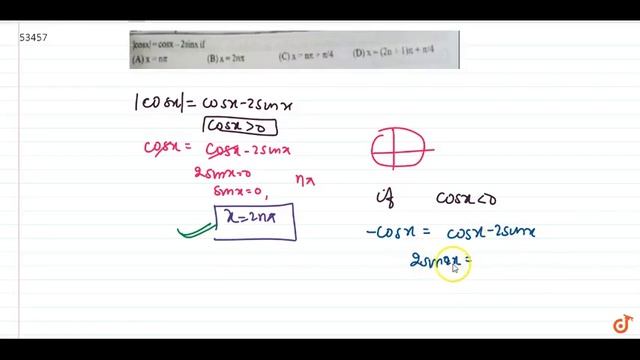 53457
|cosx| = cosx – 2sinx if
(A) x = nπ (B) x = 2nπ (C) x = nπ + π/4 (D) x = (2n + 1)π + π/4
|cosx| = cosx-2sinx
cosx>0
cosx = cosx-2sinx
2sinx=0
sinx=0, nπ
x=2nπ
if cosx<0
-cosx = cosx-2sinx
2sinx =